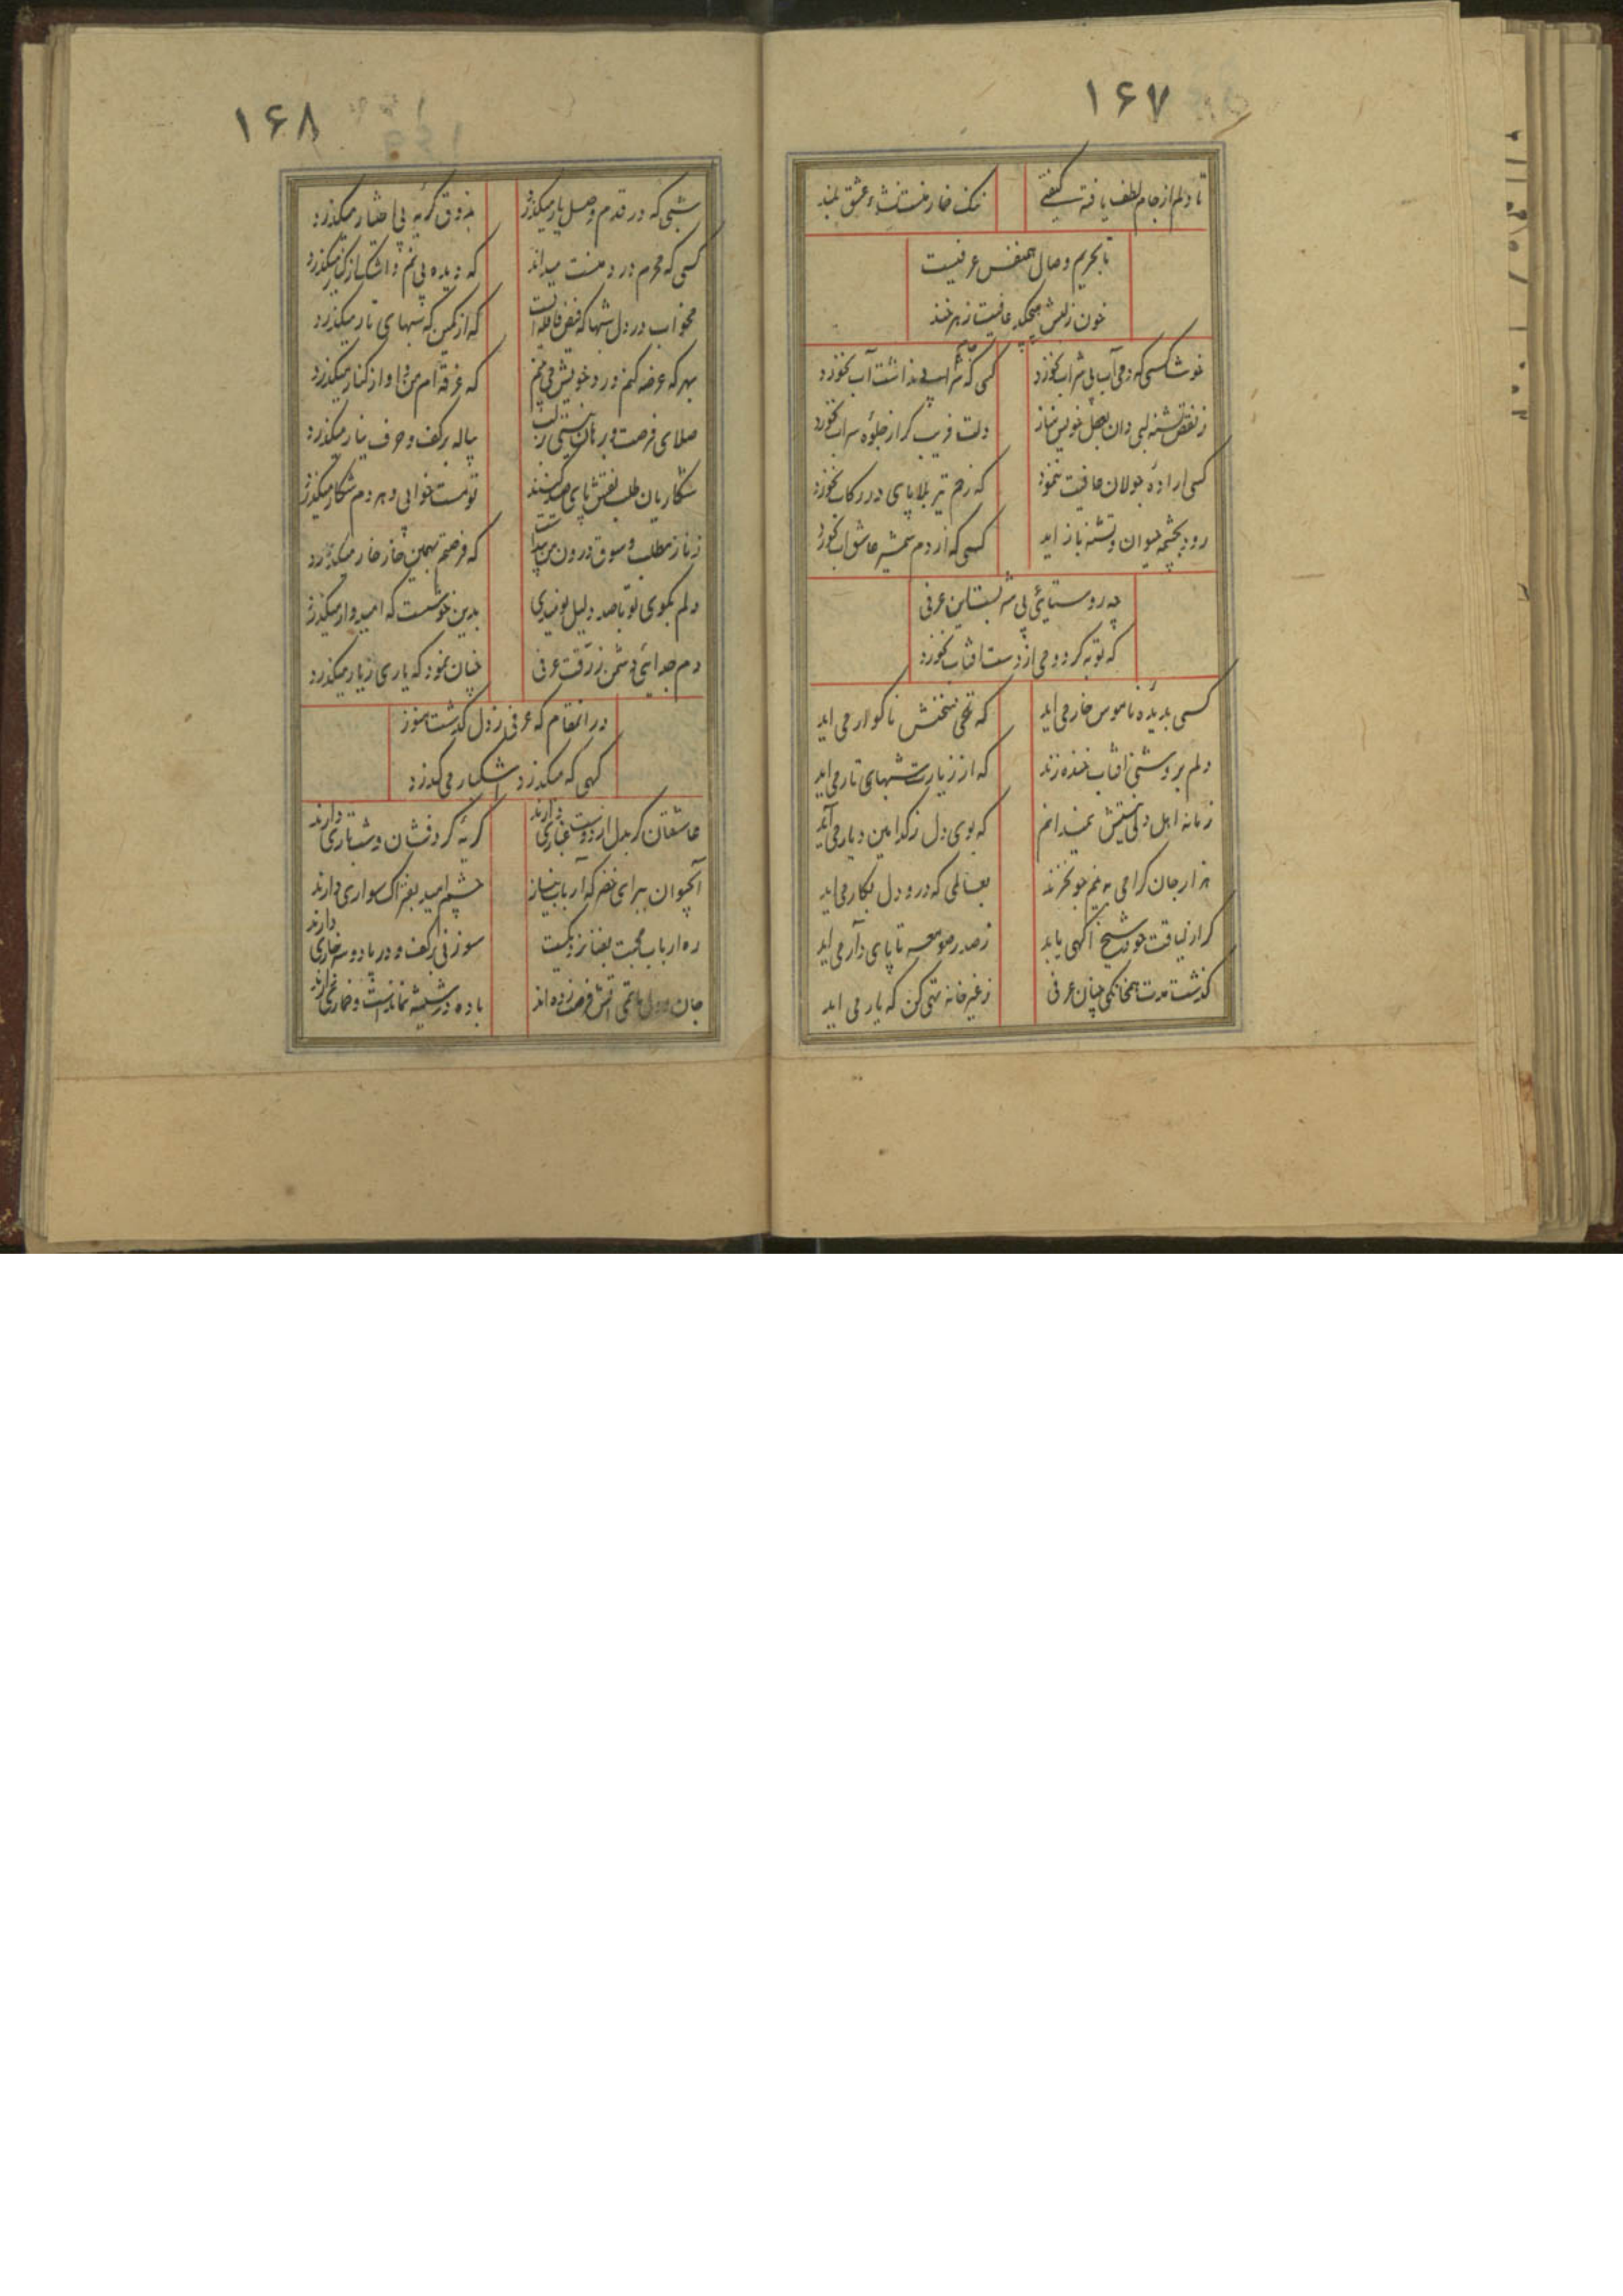 ۱۶۷
تا دلم از جام لطف یافته کیفیتی
ننگ خمار منست نشاء عشق بلند
تا بحریم وصال همنفس عرفیست
خون ز لبش میچکد عافیت زهرخند
خوشا کسی که دمی آب بی شراب نخورد
کسی که شراب نداشت آب نخورد
ز نقص تشنه لبی دان بعقل خویش مناز
دلت فریب گر از جلوه سراب نخورد
کسی اراده جولان عافیت ننمود
که زخم تیر بلا پای در رکاب نخورد
رود بچشمه حیوان و تشنه باز اید
کسی که از دم شمشیر عاشق آب نخورد
چه روستایی بی عرفی
که توبه کرد و می از دست افتاب نخورد
کسی بدیده ناموس خار می اید
که تلخی سخنش ناگوار می اید
دلم بروشنی افتاب خنده زند
که از زیارت شبهای تار می اید
زمانه اهل دلی نمیدانم
که بوی دل ز کدامین دیار می آید
هزار جان گرامی به نیم جو نخرند
بعالمی که درو دل بکار می اید
گر از لیاقت خود شیخ آگهی یابد
ز صدر صومعه تا پای دار می اید
گذشت مدت همخانگی چنان عرفی
ز غیر خانه تهی کن که یار می اید
۱۶۸
شبی که در قدم وصل یار میگذرد
بذوق گریه بی اختیار میگذرد
کسی که محرم درد منست میداند
که دیده بی نم و اشک از کنار میگذرد
مخواب در دل شبها که فیض قافله ایست
که از کمین که شبهای تار میگذرد
بهر که عرضه کنم درد خویش می بینم
که غرقه ام من و او از کنار میگذرد
صلای فرصت
پیاله بر کف و حرف میگذرد
شکاریان طلب نقش پای صید
تو مست خوابی و هر دم شکار میگذرد
ز ناز مطلب و شوق درون من پیداست
که فرصتم بهمین خار خار میگذرد
دلم بکوی تو با صد دلیل نومیدی
بدین خوشست که امیدوار میگذرد
دم جدایی دشمن عرفی
چنان نمود که یاری ز یار میگذرد
در انمقام که عرفی ز دل گذشت هنوز
کهی که میگذرد اشکبار می گذرد
عاشقان گر بدل از دوست غباری دارند
گریه گردفشان و شب تاری دارند
آبحیوان ببر ای خضر که ارباب نیاز
چشم امید بفتراک سواری دارند
ره ارباب محبت بفنا نزدیکست
سوزنی بر کف و در پا دو سه خاری دارند
جان و دل
باده در شیشه نماندست و خماری دارند